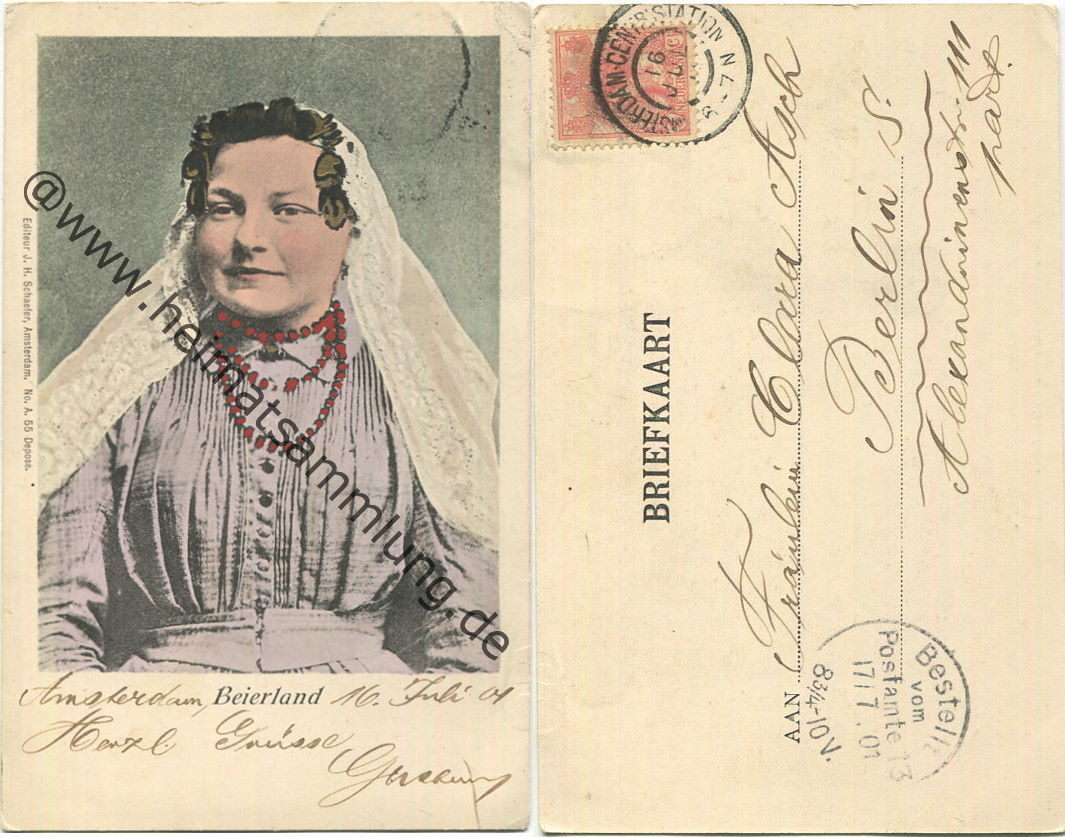 Editeur J. H. Schaefer, Amsterdam. No. A. 55 Depose.
@www.heimatsammlung.de
Amsterdam, Beierland 16. Juli 01
Herzl. Grüsse
AMSTERDAM-CENTR:STATION
BRIEFKAART
AAN Fräulein Clara Asch
Berlin S.
Alexandrinenstr. 111
Bestellt
vom
Postamte 13
17/7.01
8¾-10V.